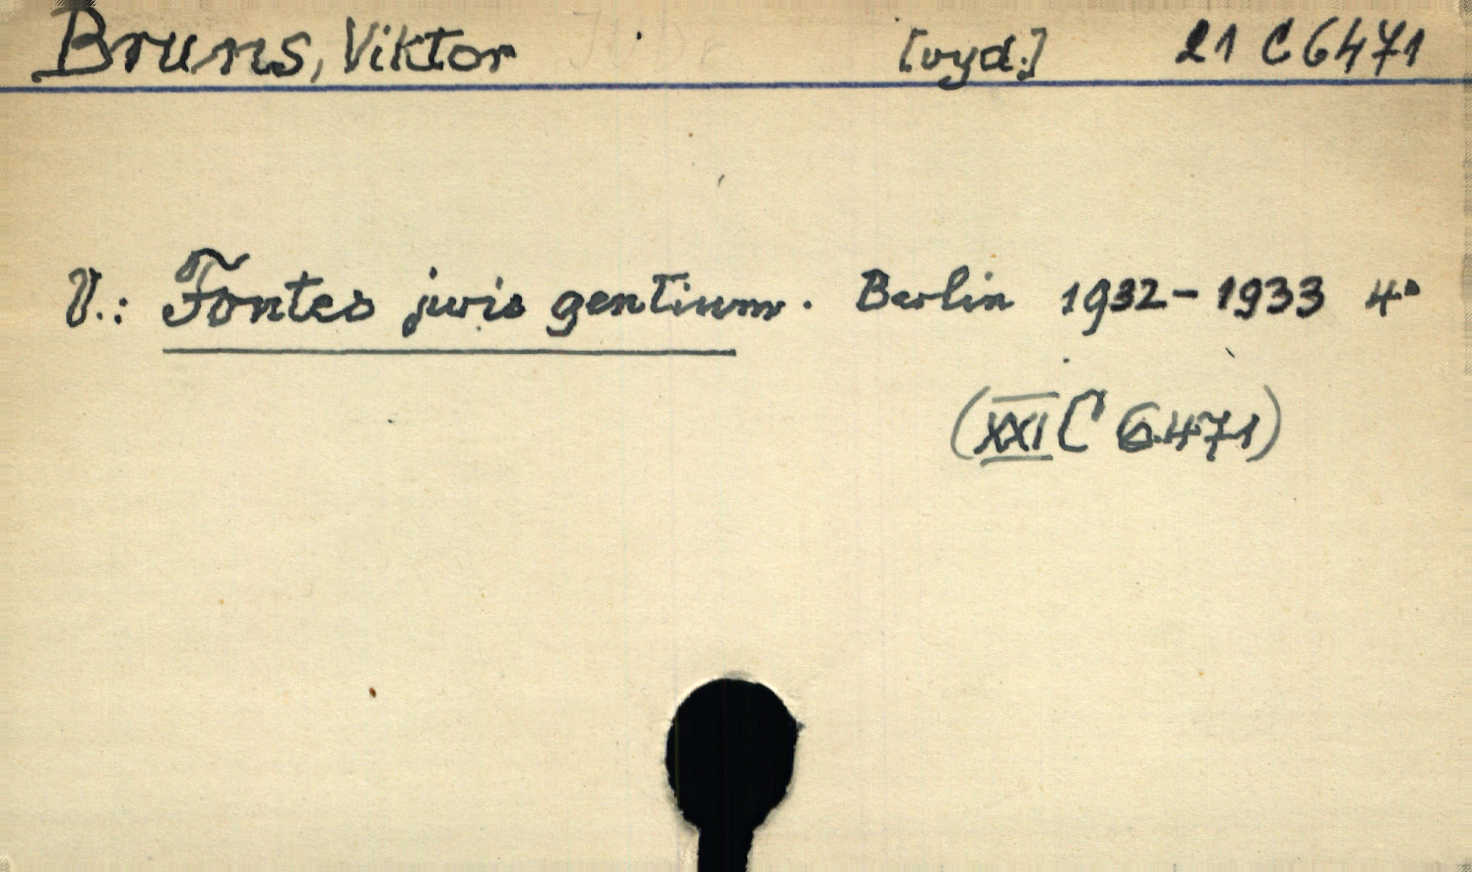 Bruns, Viktor [vyd.] 21 C 6471
V.: Fontes juris gentium. Berlin 1932-1933 4°
(XXI C 6471)